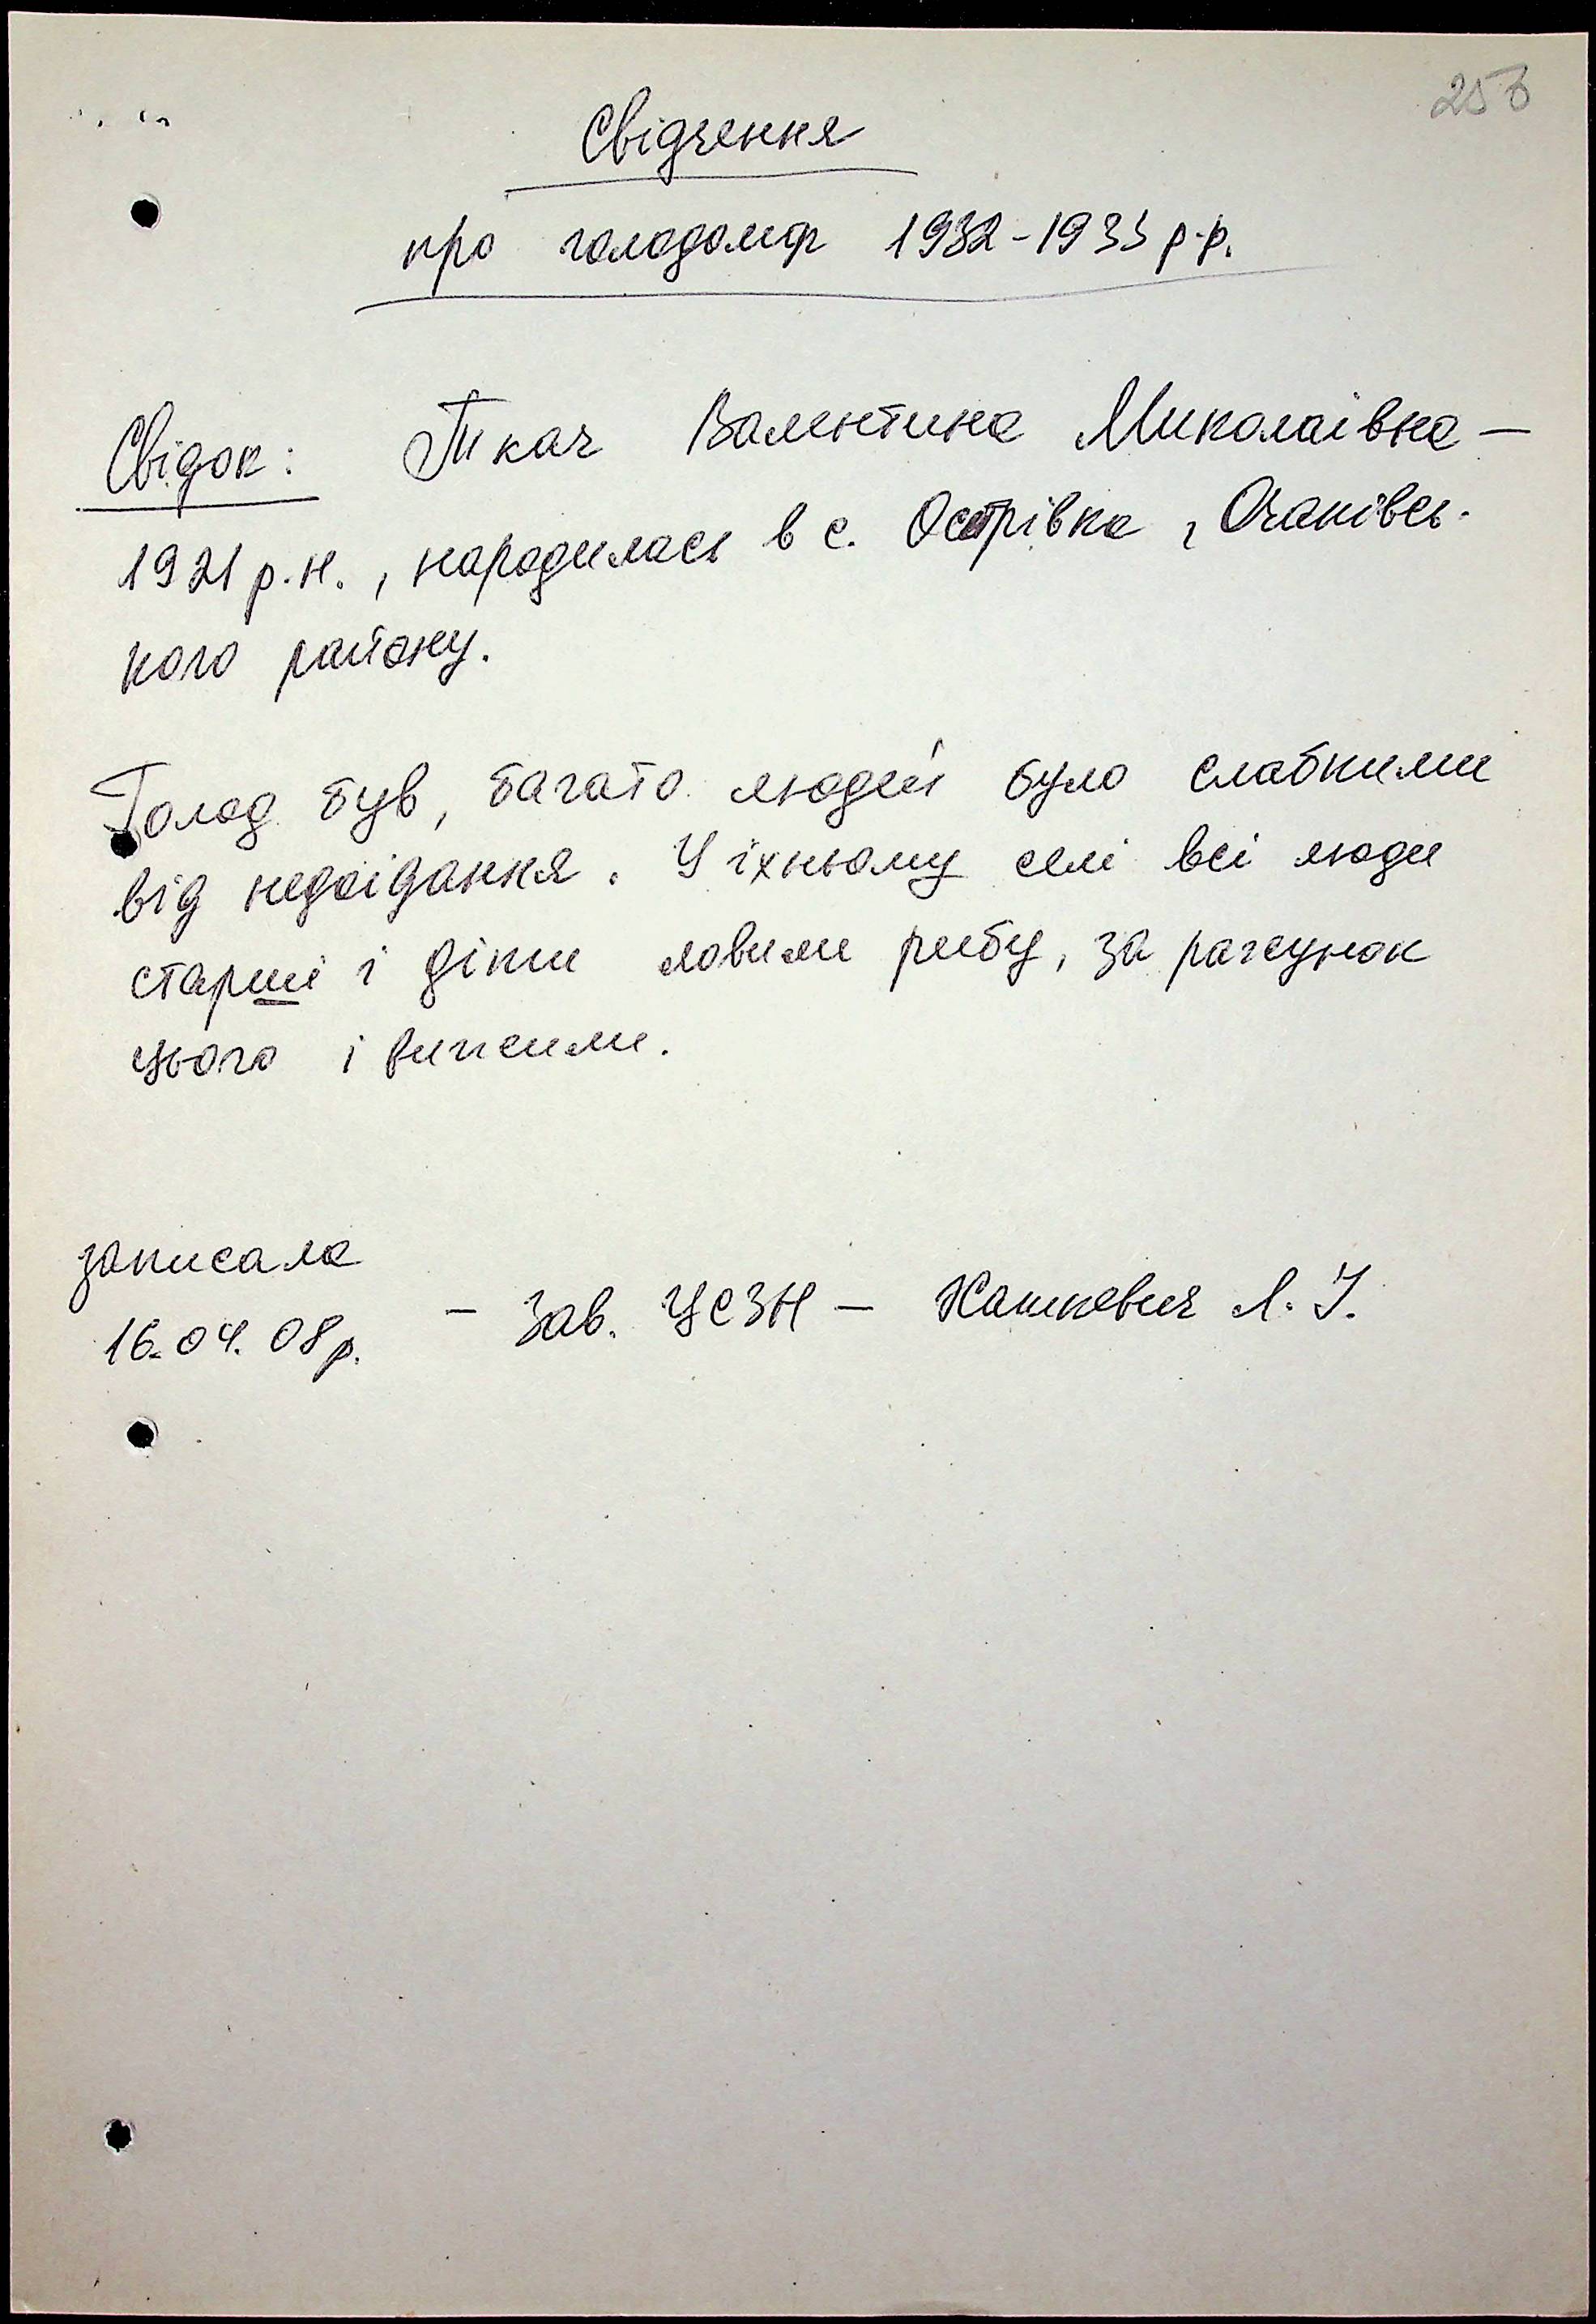 256
Свідчення
про голодомор 1932-1933 р.р.
Свідок: Ткач Валентина Миколаївна —
1921 р.н., народилась в с. Острівка, Очаківсь-
кого району.
Голод був, багато людей було слабкими
від недоїдання. У їхньому селі всі люди
старші і діти ловили рибу, за рахунок
цього і вижили.
записала
16.04.08р. - Зав. УСЗН - Кашкевич Л. І.